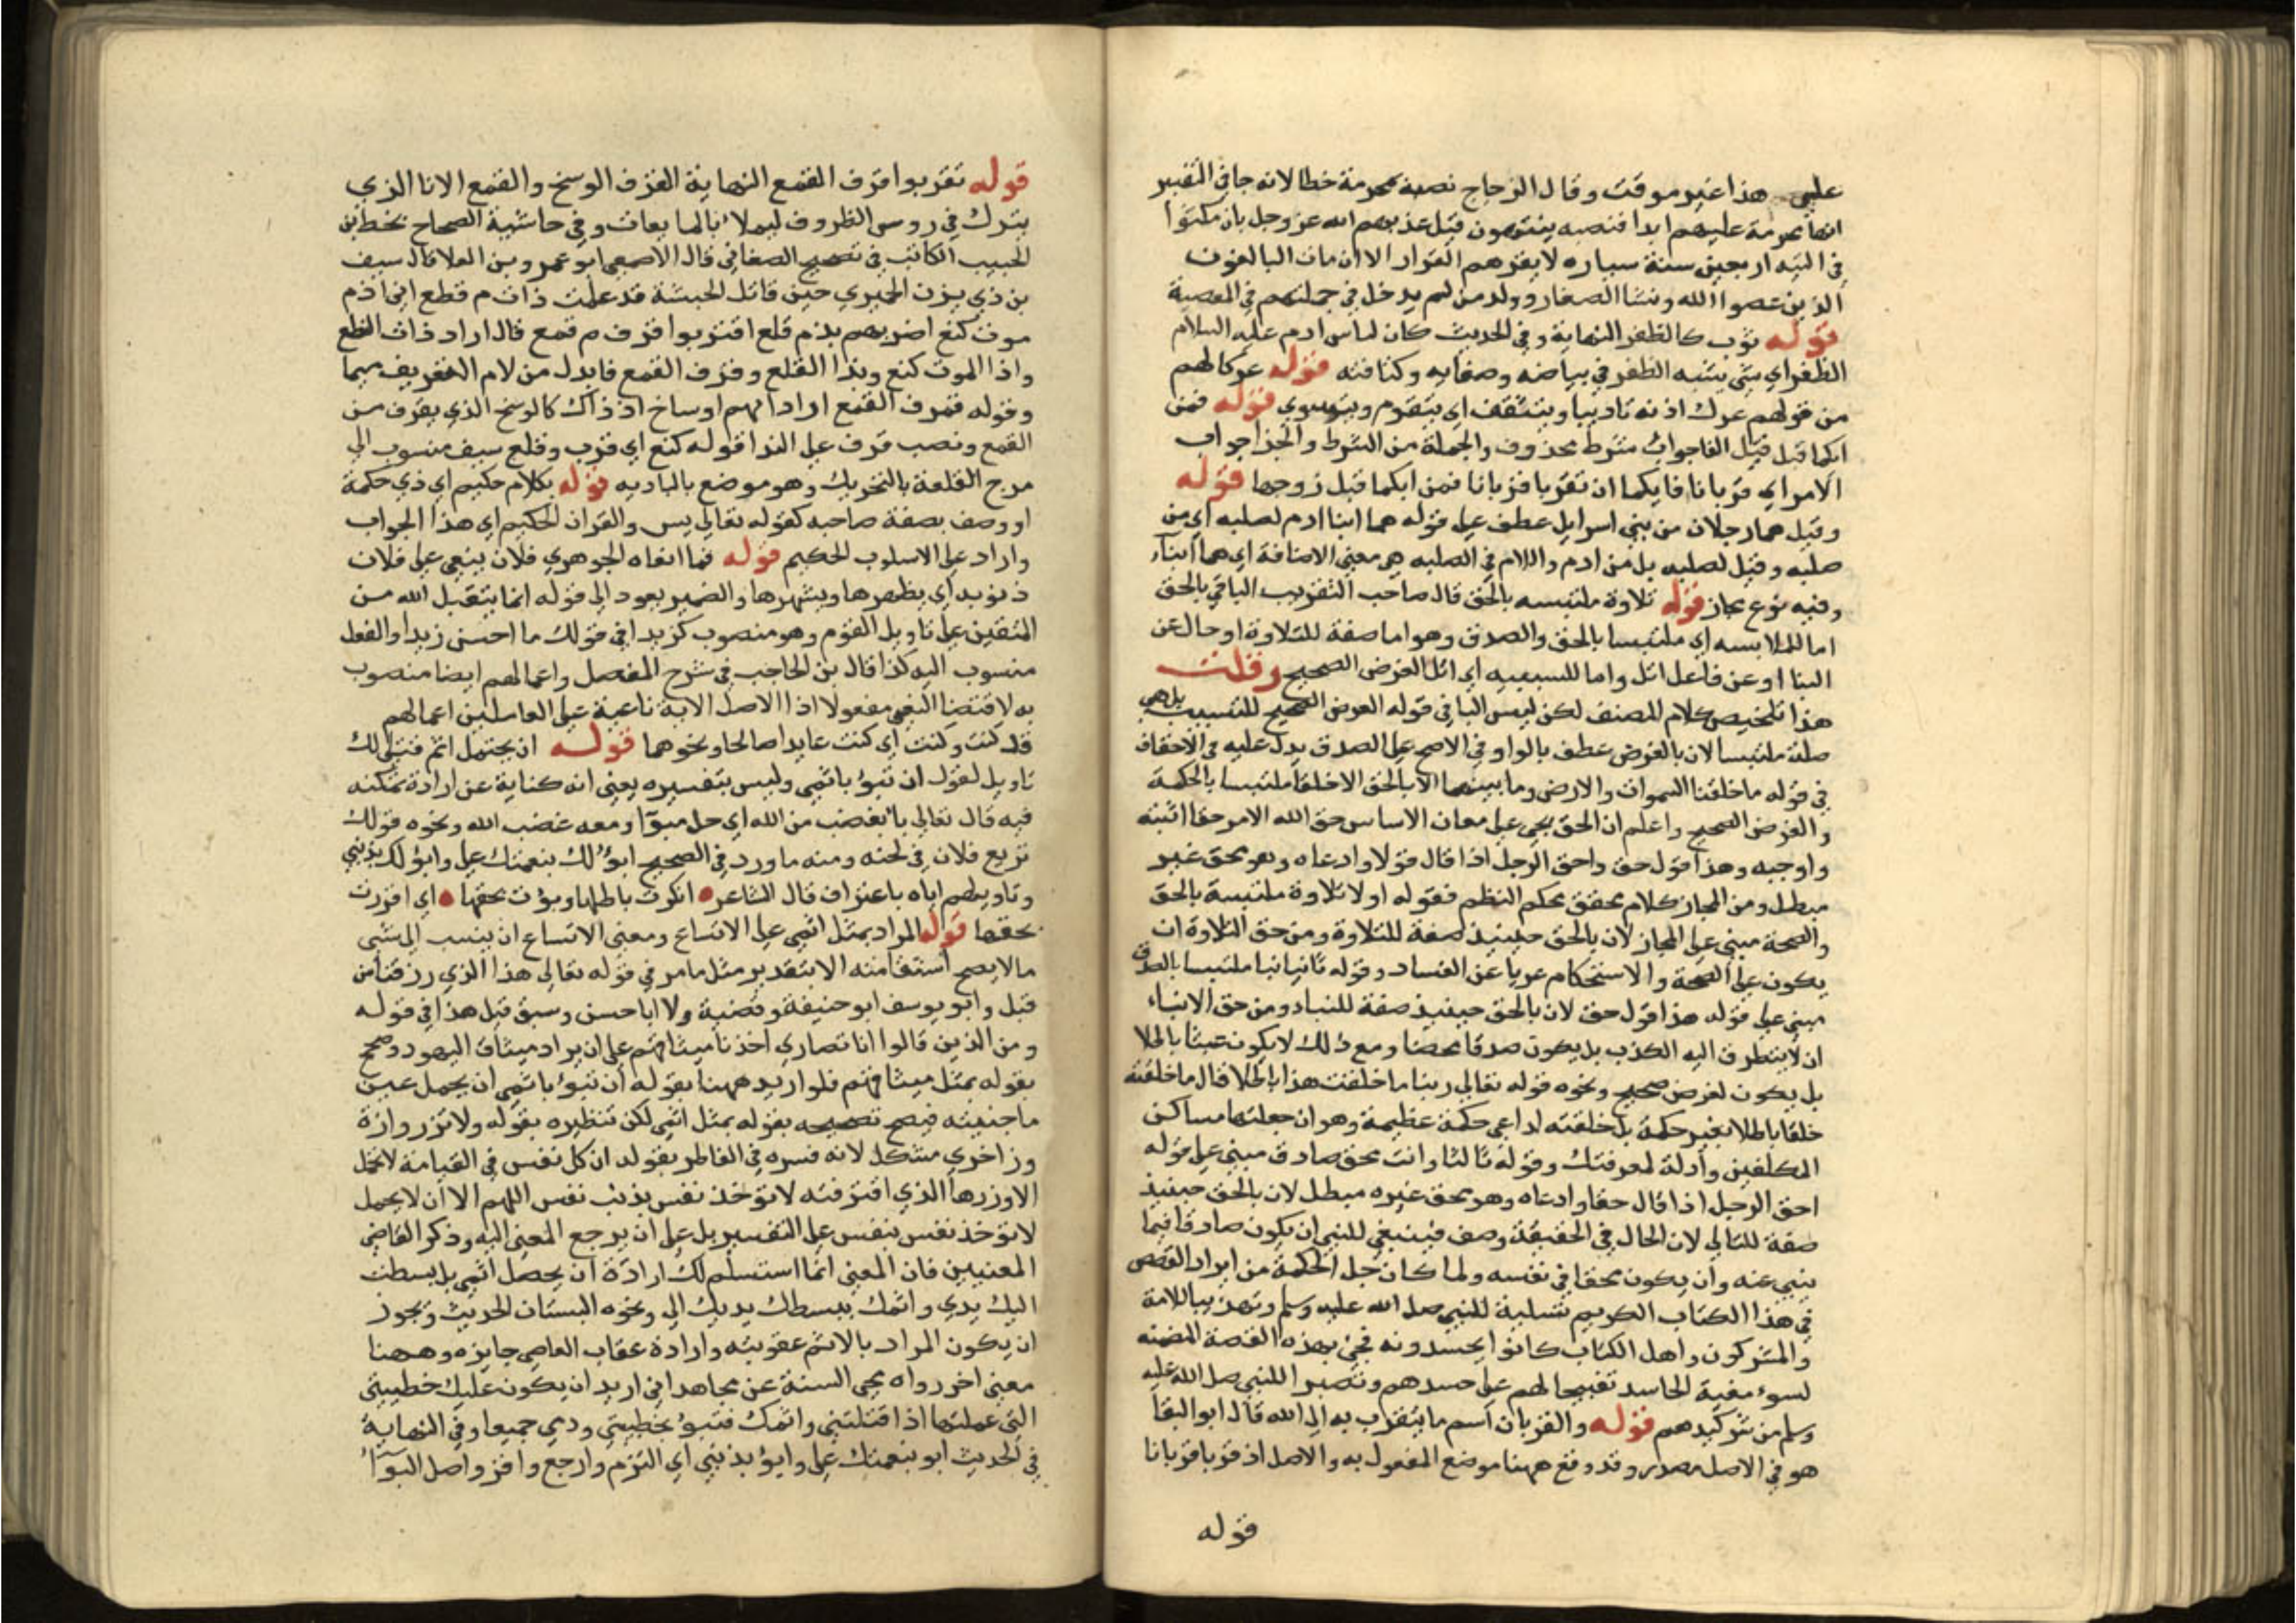 على هذا غير موقت وقال الزجاج نصبه محرمة خطا لانه جا في التفسير
انها محرمة عليهم ابدا فنصبه يتيهون قيل عذبهم الله عز وجل بان مكثوا
في التيه اربعين سنة سياره لا يقرهم القرار الا ان مات البالغون
الذين عصوا الله ونشا الصغار وولد من لم يدخل في جملتهم في المعصية
قوله ثوب كالظفر النهاية وفي الحديث كان لباس ادم عليه السلام
الظفر اي شي يشبه الظفر في بياضه وصفايه وكثافته قوله عركا لهم
من قولهم عرك اذنه تاديبا ويتثقف اي يتقوم ويتسوي قوله فمن
ايكما قبل قيل الفا جواب شرط محذوف والجملة من الشرط والجزا جواب
الامر اي قربانا فايكما ان تقربا قربانا فمن ايكما قبل زوجها قوله
وقيل هما رجلان من بني اسرايل عطف على قوله هما ابنا ادم لصلبه اي من
صلبه وقيل لصلبه بل من ادم واللام في الصلبه هي معنى الاضافة اي هما ابنا
وفيه نوع مجاز قوله تلاوة ملتبسه بالحق قال صاحب التقريب البا في بالحق
اما للملابسه اي ملتبسا بالحق والصدق وهو اما صفة للتلاوة او حال عن
النبا او عن فاعل اتل واما للسببيه اي اتل الغرض الصحيح وقلت
هذا تلخيص كلام المصنف لكن ليس البا في قوله الغرض الصحيح للتسبيب بل هي
صلة ملتبسا لان بالغرض عطف بالواو في الاصح على الصدق يدل عليه في الاحقاف
في قوله ما خلقنا السموات والارض وما بينهما الا بالحق الا خلقا ملتبسا بالحكمة
والغرض الصحيح واعلم ان الحق يجي على معان الاساس حق الله الامر حقا اثبته
واوجبه وهذا قول حق واحق الرجل اذا قال قولا وادعاه وهو محق غير
مبطل ومن المجاز كلام محقق محكم النظم فقوله اولا تلاوة ملتبسة بالحق
والصحة مبني على المجاز لان بالحق حينيذ صفة للتلاوة ومن حق التلاوة ان
يكون على الصحة والاستحكام عريا عن الفساد وقوله ثانيا نبا ملتبسا بالصدق
مبني على قوله هذا قول حق لان بالحق حينيذ صفة للنبا ومن حق الانباء
ان لا يتطرق اليه الكذب بل يكون صدقا محضا ومع ذلك لا يكون عبثا باطلا
بل يكون لغرض صحيح ونحوه قوله تعالى ربنا ما خلقت هذا باطلا قال ما خلقته
خلقا باطلا بغير حكمة بل خلقته لداعي حكمة عظيمة وهو ان جعلتها مساكن
المكلفين وادلة لمعرفتك وقوله ثالثا وانت محق صادق مبني على قوله
احق الرجل اذا قال حقا وادعاه وهو محق غيره مبطل لان بالحق حينيذ
صفة للتالي لان الحال في الحقيقة وصف فينبغي للنبي ان يكون صادقا فيما
ينبي عنه وان يكون محقا في نفسه ولما كان جل الحكمة من ايراد القصص
في هذا الكتاب الكريم تسلية للنبي صلى الله عليه وسلم وتهذيبا للامة
والمشركون واهل الكتاب كانوا يحسدونه فجي بهذه القصة المضمنه
لسوء مغبة الحاسد تقبيحا لهم على حسدهم وتصبرا للنبي صلى الله عليه
وسلم من كيدهم قوله والقربان اسم ما يتقرب به الى الله قال ابو البقا
هو في الاصل مصدر وقد وقع ههنا موضع المفعول به والاصل اذ قربا قربانا
قوله
قوله تقربوا قرف القمع النهاية القرف الوسخ والقمع الانا الذي
يترك في روس الظروف ليملا بالمايعات وفي حاشية الصحاح بخط بن
الحبيب الكاتب في تصحيح الصغاني قال الاصمعي ابو عمرو بن العلا قال سيف
بن ذي يزن الحميري حين قاتل الحبشة قد علمت ذات م قطع اني اذم
موت كنع اضربهم بذم قلع اقتربوا قرف م قمع قال اراد ذات القطع
واذا الموت كنع وبذا القلع وقرف القمع فابدل من لام التعريف ميما
وقوله قرف القمع اراد انهم اوساخ اذ ذاك كالوسخ الذي يقرف من
القمع ونصب قرف على الندا قوله كنع اي قرب وقلع سيف منسوب الى
مرج القلعة بالتحريك وهو موضع بالباديه قوله بكلام حكيم اي ذي حكمة
او وصف بصفة صاحبه كقوله تعالى يس والقران الحكيم اي هذا الجواب
وارد على الاسلوب الحكيم قوله فما انعاه الجوهري فلان ينعي على فلان
ذنوبه اي يظهرها ويشهرها والضمير يعود الى قوله انما يتقبل الله من
المتقين على تاويل القوم وهو منصوب كزيدا في قولك ما احسن زيدا والفعل
منسوب اليه كذا قال بن الحاجب في شرح المفصل واعمالهم ايضا منصوب
به لاقتضا النعي مفعولا اذا الاصل الاية ناعية على العاملين اعمالهم
قد كنت وكنت اي كنت عابدا صالحا ونحوهما قوله ان يحتمل اثم قتلي لك
تاويل لقوله ان تبوء باثمي وليس بتفسيره يعني انه كناية عن ارادة تمكنه
فيه قال تعالى باء بغضب من الله اي حل مبوا ومعه غضب الله ونحوه قولك
تربع فلان في لحنه ومنه ما ورد في الصحيح ابوء لك بنعمتك علي وابوء لك بذنبي
وتاويلهم اياه باعتراف قال الشاعر • انكرت باطلها وبؤت بحقها • اي اقررت
بحقها قوله المراد بمثل اثمي على الاتساع ومعنى الاتساع ان ينسب الى شي
ما لا يصح استقامته الا بتقدير مثل ما مر في قوله تعالى هذا الذي رزقنا من
قبل وابو يوسف ابو حنيفة وقضية ولا ابا حسن وسبق قبل هذا في قوله
ومن الذين قالوا انا نصارى اخذنا ميثاقهم على ان يراد ميثاق اليهود وصحح
بقوله بمثل ميثاقهم فلو اريد ههنا بقوله ان تبوء باثمي ان يحمل عين
ما جنيته فيصح تصحيحه بقوله بمثل اثمي لكن تنظيره بقوله ولا تزر وازرة
وزر اخرى مشكل لانه فسره في الفاطر بقوله ان كل نفس في القيامة لا تحمل
الا وزرها الذي اقترفته لا تؤخذ نفس بذنب نفس اللهم الا ان لا يحمل
لا تؤخذ نفس بنفس على التفسير بل على ان يرجع المعنى اليه وذكر القاضي
المعنيين فان المعنى انما استسلم لك ارادة ان يحصل اثمي بل بسطت
اليك يدي واثمك ببسطك يديك الي ونحوه البستان الحديث ويجوز
ان يكون المراد بالاثم عقوبته وارادة عقاب العاصي جايزه وههنا
معنى اخر رواه محي السنة عن مجاهد اني اريد ان يكون عليك خطيئتي
التي عملتها اذا قتلتني واثمك فتبوء بخطيئتي ودمي جميعا وفي النهاية
في الحديث ابو بنعمتك علي وابوء بذنبي اي التزم وارجع واقر واصل البواء